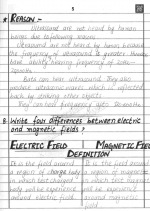 5
* REASON -
Ultrasound are not heard by human
beings due to following reason
Ultrasound are not heard by human because
the frequency of ultrasound is greater Humans
have ability hearing frequency of 20Hz-
Bats can hear ultrasound. They also
produce ultrasonic waves which is reflected
back by striking other objects
They can hear frequency upto
8. Write four differences between electric
and magnetic fields?
ELECTRIC FIELD MAGNETIC FIELD
DEFINITION
It is the field around
a region of charge body
in which test charged
body will be experience
around electric field.
It is the field around
a region of magnet
in which
will be experience
around magnetic
field.